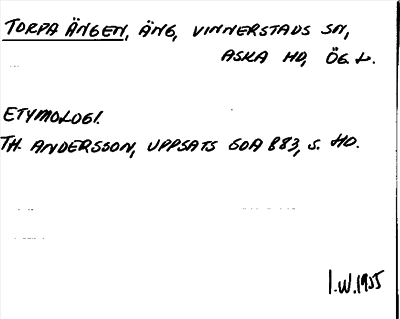 TORPA ÄNGEN, ÄNG, VINNERSTADS SN,
ASKA HD, ÖG. L.
ETYMOLOGI.
TH. ANDERSSON, UPPSATS GOA 883, S. 40.
I.W. 1955